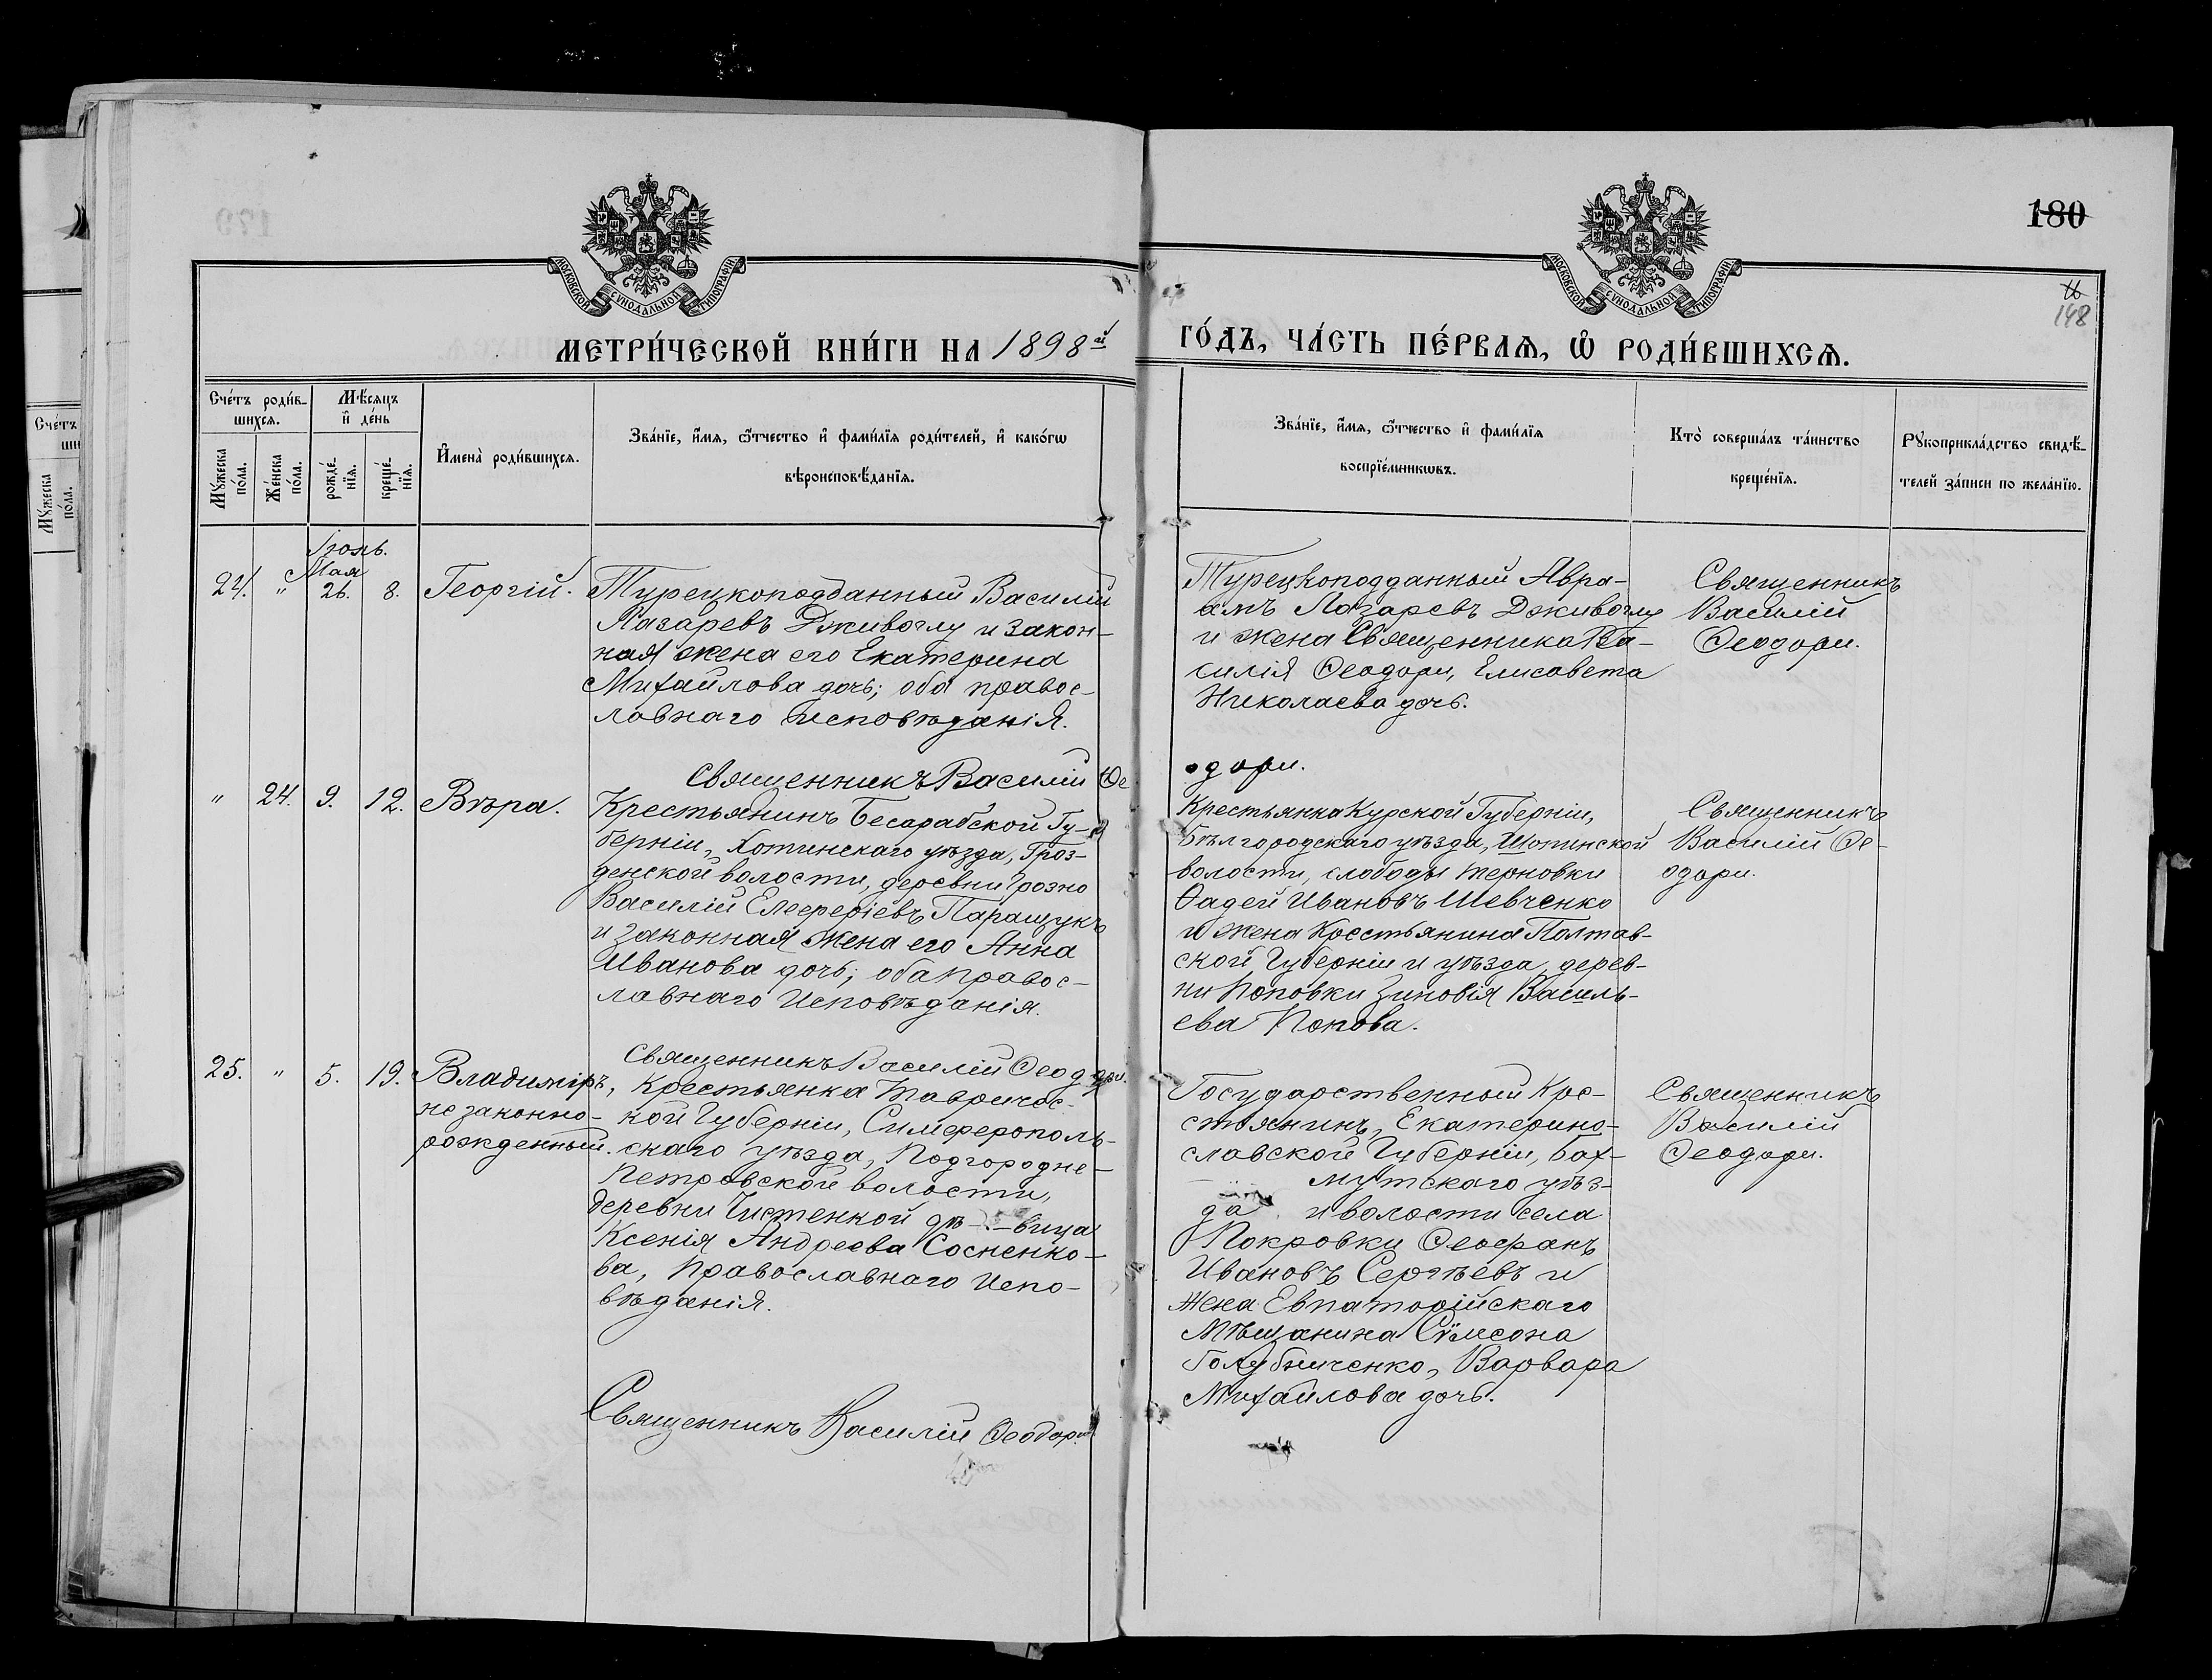 180
11
148
МОСКОВСКОЙ СѴНОДАЛЬНОЙ ТИПОГРАФІИ
МОСКОВСКОЙ СѴНОДАЛЬНОЙ ТИПОГРАФІИ
МЕТРИ́ЧЕСКОЙ КНИ́ГИ НА 1898й
ГО́ДЪ, ЧА́СТЬ ПЕ́РВАѦ, Ѡ҆ РОДИ́ВШИХСѦ.
Сче́тъ роди́в-
шихсѧ.
Мѣ́сяцъ
и҆ де́нь
Мꙋ́жеска по́ла.
Же́нска по́ла.
рожде́-
нїѧ.
креще́-
нїѧ.
И҆мена̀ роди́вшихсѧ.
Зва́нїе, и҆́мѧ, ѻ҆́тчество и҆ фами́лїѧ роди́телей, и҆ како́гѡ
вѣроисповѣ́данїѧ.
Зва́нїе, и҆́мѧ, ѻ҆́тчество и҆ фами́лїѧ
воспрїе́мникѡвъ.
Кто̀ соверша́лъ та́инство
креще́нїѧ.
Рꙋкоприкла́дство свидѣ́-
телей за́писи по жела́нїю.
Сче́тъ
ши
Мꙋ́жеска
по́ла.
Іюнь.
Мая
24. " 26. 8. Георгій.
Турецкоподданный Василій
Лазаревъ Дживоглу и закон-
ная жена его Екатерина
Михайлова дочь; оба правос-
лавнаго исповѣданія.
Турецкоподданный Авра-
амъ Лазаревъ Дживоглу
и жена Священника Ва-
силія Ѳеодори, Елисавета
Николаева дочь.
Священникъ
Василій
Ѳеодори.
Священникъ Василій Ѳе
одори.
" 24. 9. 12. Вѣра.
Крестьянинъ Бесарабской Гу-
берніи, Хотинскаго уѣзда, Гроз-
денской волости, деревни Грозно
Василій Елеферіевъ Паращукъ
и законная жена его Анна
Иванова дочь; оба правос-
лавнаго Исповѣданія.
Крестьянка Курской Губерніи,
Бѣлгородскаго уѣзда, Шопинской
волости, слободы Терновки
Ѳадей Ивановъ Шевченко
и жена Крестьянина Полтав-
ской Губерніи и уѣзда, дерев-
ни Поповки Зиновія Василь-
ева Попова.
Священникъ
Василій Ѳе-
одори.
Священникъ Василій Ѳеодори.
25. " 5. 19. Владиміръ,
незаконно-
рожденный.
Крестьянка Тавричес-
кой Губерніи, Симферополь-
скаго уѣзда, Подгородне-
Петровской волости,
деревни Чистенкой дѣ-вица
Ксенія Андреева Сосненко-
ва, Православнаго Испо-
вѣданія.
Государственный Кре-
стьянинъ, Екатерино-
славской Губерніи, Бах-
мутскаго уѣз-
да и волости села
Покровки Ѳеофанъ
Ивановъ Сергѣевъ и
жена Евпаторійскаго
Мѣщанина Сѵмеона
Голубниченко, Варвара
Михайлова дочь.
Священникъ
Василій
Ѳеодори.
Священникъ Василій Ѳеодори